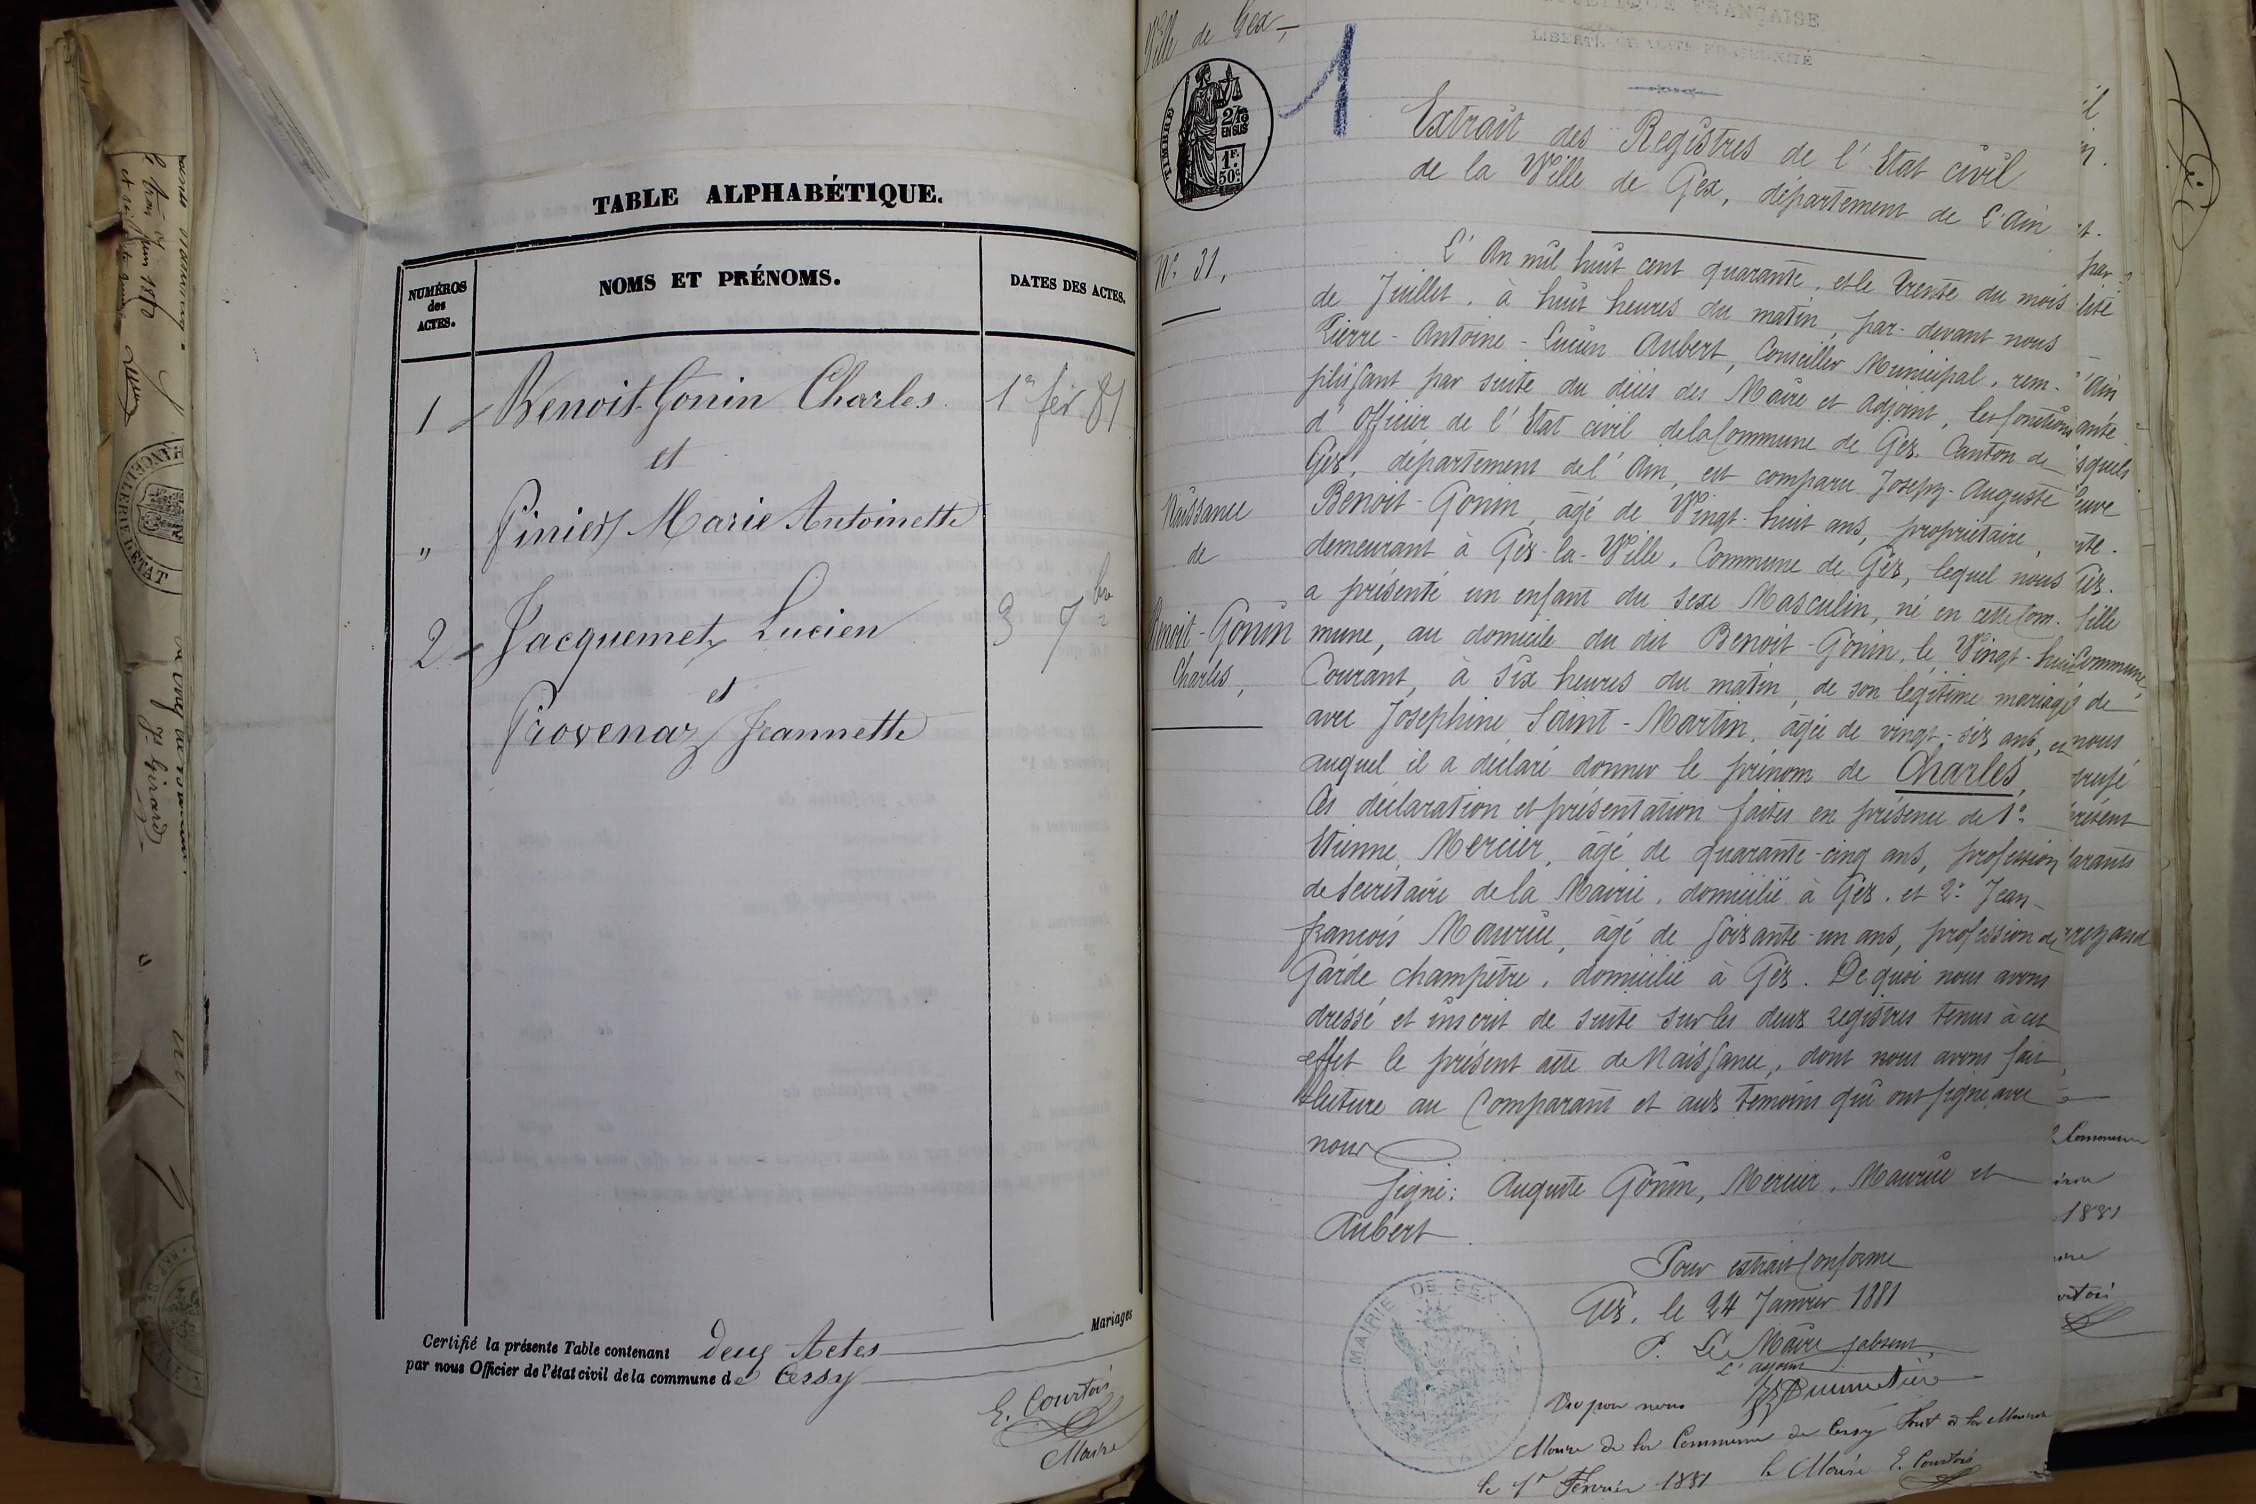 TABLE ALPHABÉTIQUE.
NUMÉROS des ACTES.
NOMS ET PRÉNOMS.
DATES DES ACTES.
1 Benoit-Gonin Charles 1er fév 81
et
„ Pinier Marie Antoinette
2 Jacquemet Lucien 3 7bre
et
Provenaz Jeannette
Mariages
Certifié la présente Table contenant deux Actes
par nous Officier de l'état civil de la commune de Cessy
E. Courtois
Maire
Ville de Gex
1
RÉPUBLIQUE FRANÇAISE
LIBERTÉ, ÉGALITÉ, FRATERNITÉ
TIMBRE
2/10
EN SUS
1F.
50c.
Extrait des Registres de l'Etat civil
de la Ville de Gex, département de l'Ain
No 31,
L'An mil huit cent quarante, et le trente du mois
de Juillet, à huit heures du matin, par-devant nous
Pierre-Antoine-Lucien Aubert, Conseiller Municipal, rem-
plissant par suite du décès des Maire et Adjoint, les fonctions
d'Officier de l'Etat civil de la Commune de Gex, Canton de
Gex, département de l'Ain, est comparu Joseph-Auguste
Benoit-Gonin, âgé de Vingt-huit ans, propriétaire,
demeurant à Gex-la-Ville, Commune de Gex, lequel nous
a présenté un enfant du sexe Masculin, né en cette Com-
mune, au domicile du dit Benoit-Gonin, le Vingt-huit
Courant, à six heures du matin, de son légitime mariage
avec Josephine Saint-Martin, âgée de vingt-six ans, et
auquel il a déclaré donner le prénom de Charles,
Ces déclaration et présentation faites en présence de 1o
Etienne Mercier, âgé de quarante-cinq ans, profession
de secrétaire de la Mairie, domicilié à Gex, et 2o Jean-
françois Maurice, âgé de soixante-un ans, profession de
Garde champêtre, domicilié à Gex. De quoi nous avons
dressé et inscrit de suite sur les deux registres tenus à cet
effet le présent acte de Naissance, dont nous avons fait
lecture au Comparant et aux temoins qui ont signé avec
nous
Signé: Auguste Gonin, Mercier, Maurice et
Aubert
Naissance
de
Benoit-Gonin
Charles,
Pour extrait Conforme
Gex, le 24 Janvier 1881
P. Le Maire absent,
L'adjoint
MAIRIE DE GEX
AIN
Vu par nous
Maire de la Commune de Cessy
le 1er Février 1881 le Maire E. Courtois
CHANCELLERIE D'ETAT